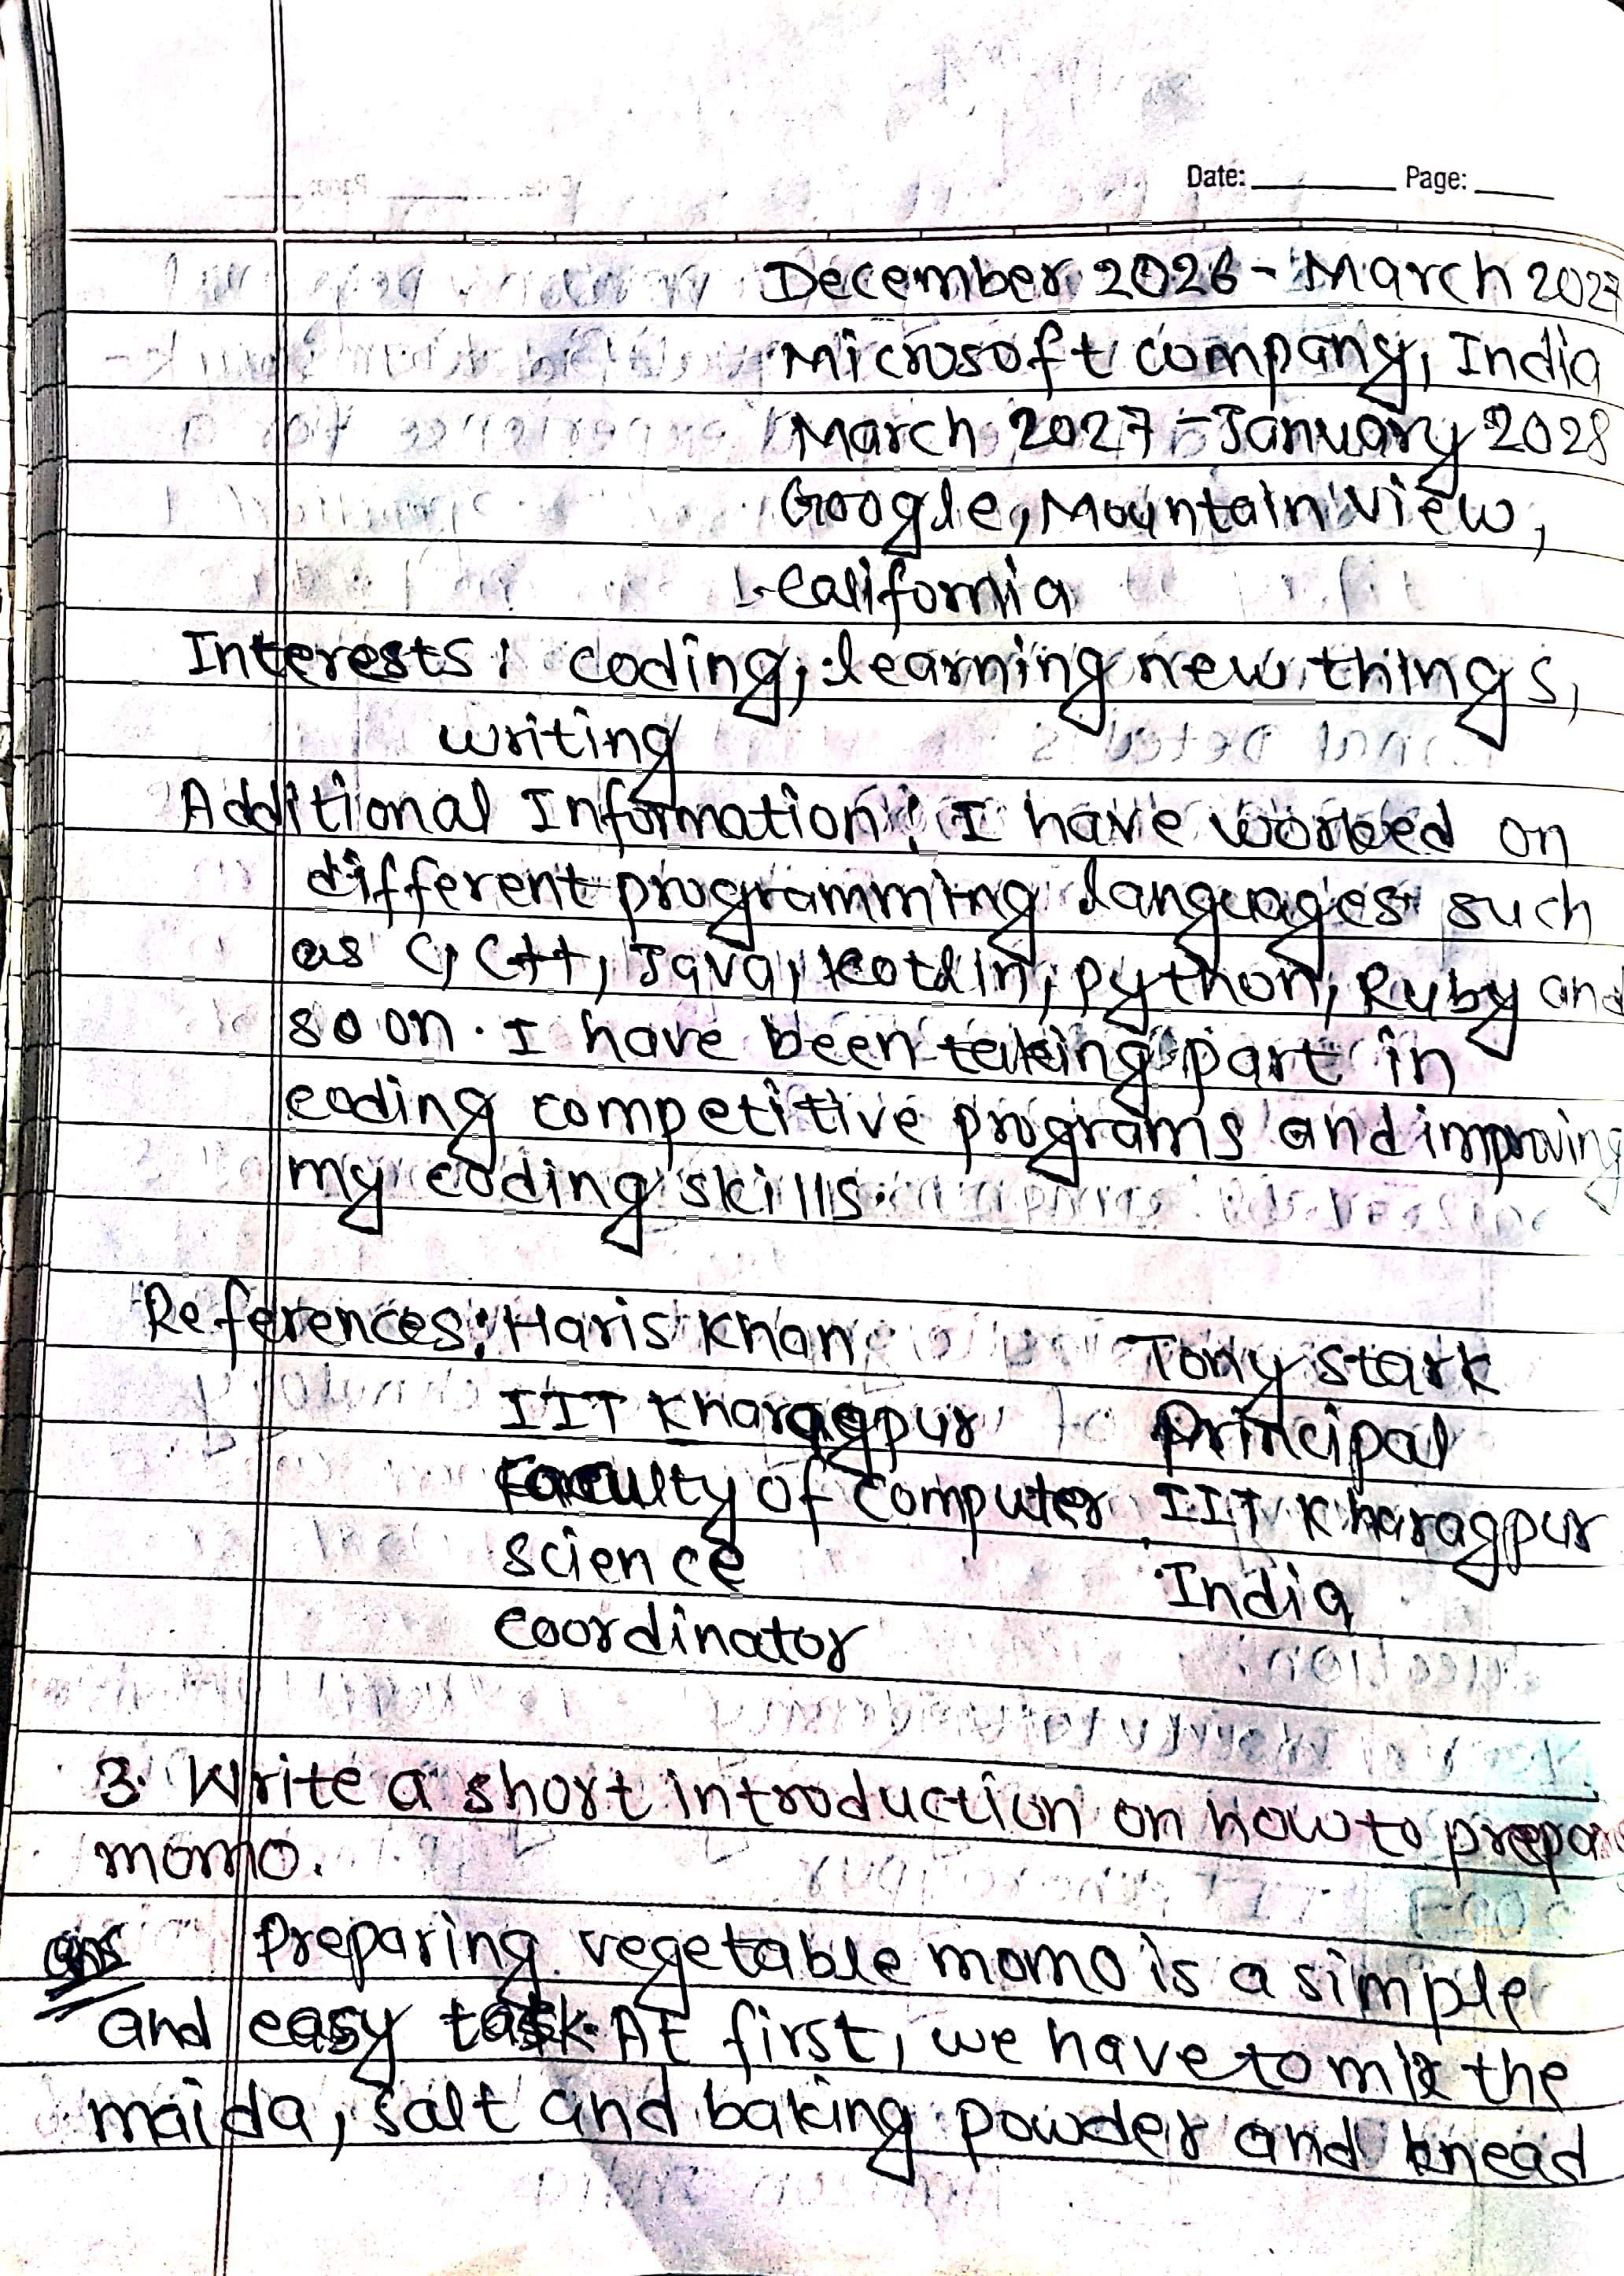 Date: Page:
December 2026 - March 2027
Microsoft company, India
March 2027 - January 2028
Google, Mountain View,
California
Interests: coding, learning new things,
writing
Additional Information: I have worked on
different programming languages such
as C, C++, Java, Kotlin, python, Ruby and
so on. I have been taking part in
coding competitive programs and improving
my coding skills.
References: Haris Khan Tony Stark
IIT Kharagpur Principal
Faculty of Computer IIT Kharagpur
science India
Coordinator
3. Write a short introduction on how to prepare
momo.
ans Preparing vegetable momo is a simple
and easy task. At first, we have to mix the
maida, salt and baking powder and knead